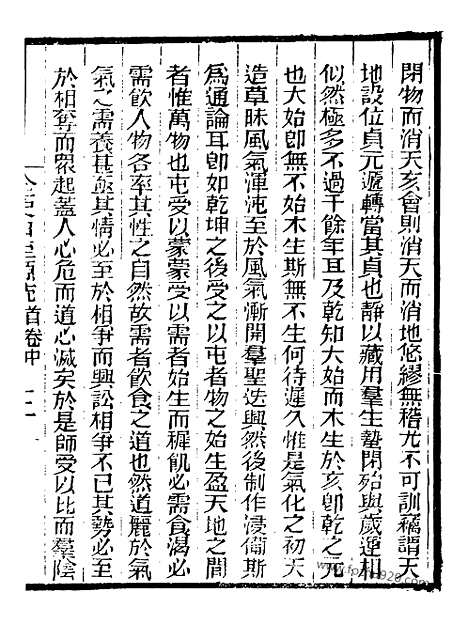 閉物而消天亥會則消天而消地悠繆無稽尤不可訓竊謂天
地設位貞元遞轉當其貞也靜以藏用羣生蟄閉殆與歲運相
似然極多不過千餘年耳及乾知大始而木生於亥卽乾之元
也大始卽無不始木生斯無不生何待遲久惟是氣化之初天
造草昧風氣渾沌至於風氣漸開羣聖迭興然後制作浸備斯
爲通論耳卽如乾坤之後受之以屯者物之始生盈天地之間
者惟萬物也屯受以蒙蒙受以需者始生而穉飢必需食渴必
需飮人物各率其性之自然故需者飮食之道也然道麗於氣
氣之需養甚亟其情必至於相爭而興訟相爭不已其勢必至
於相奪而眾起蓋人心危而道心滅矣於是師受以比而羣陰
首卷中